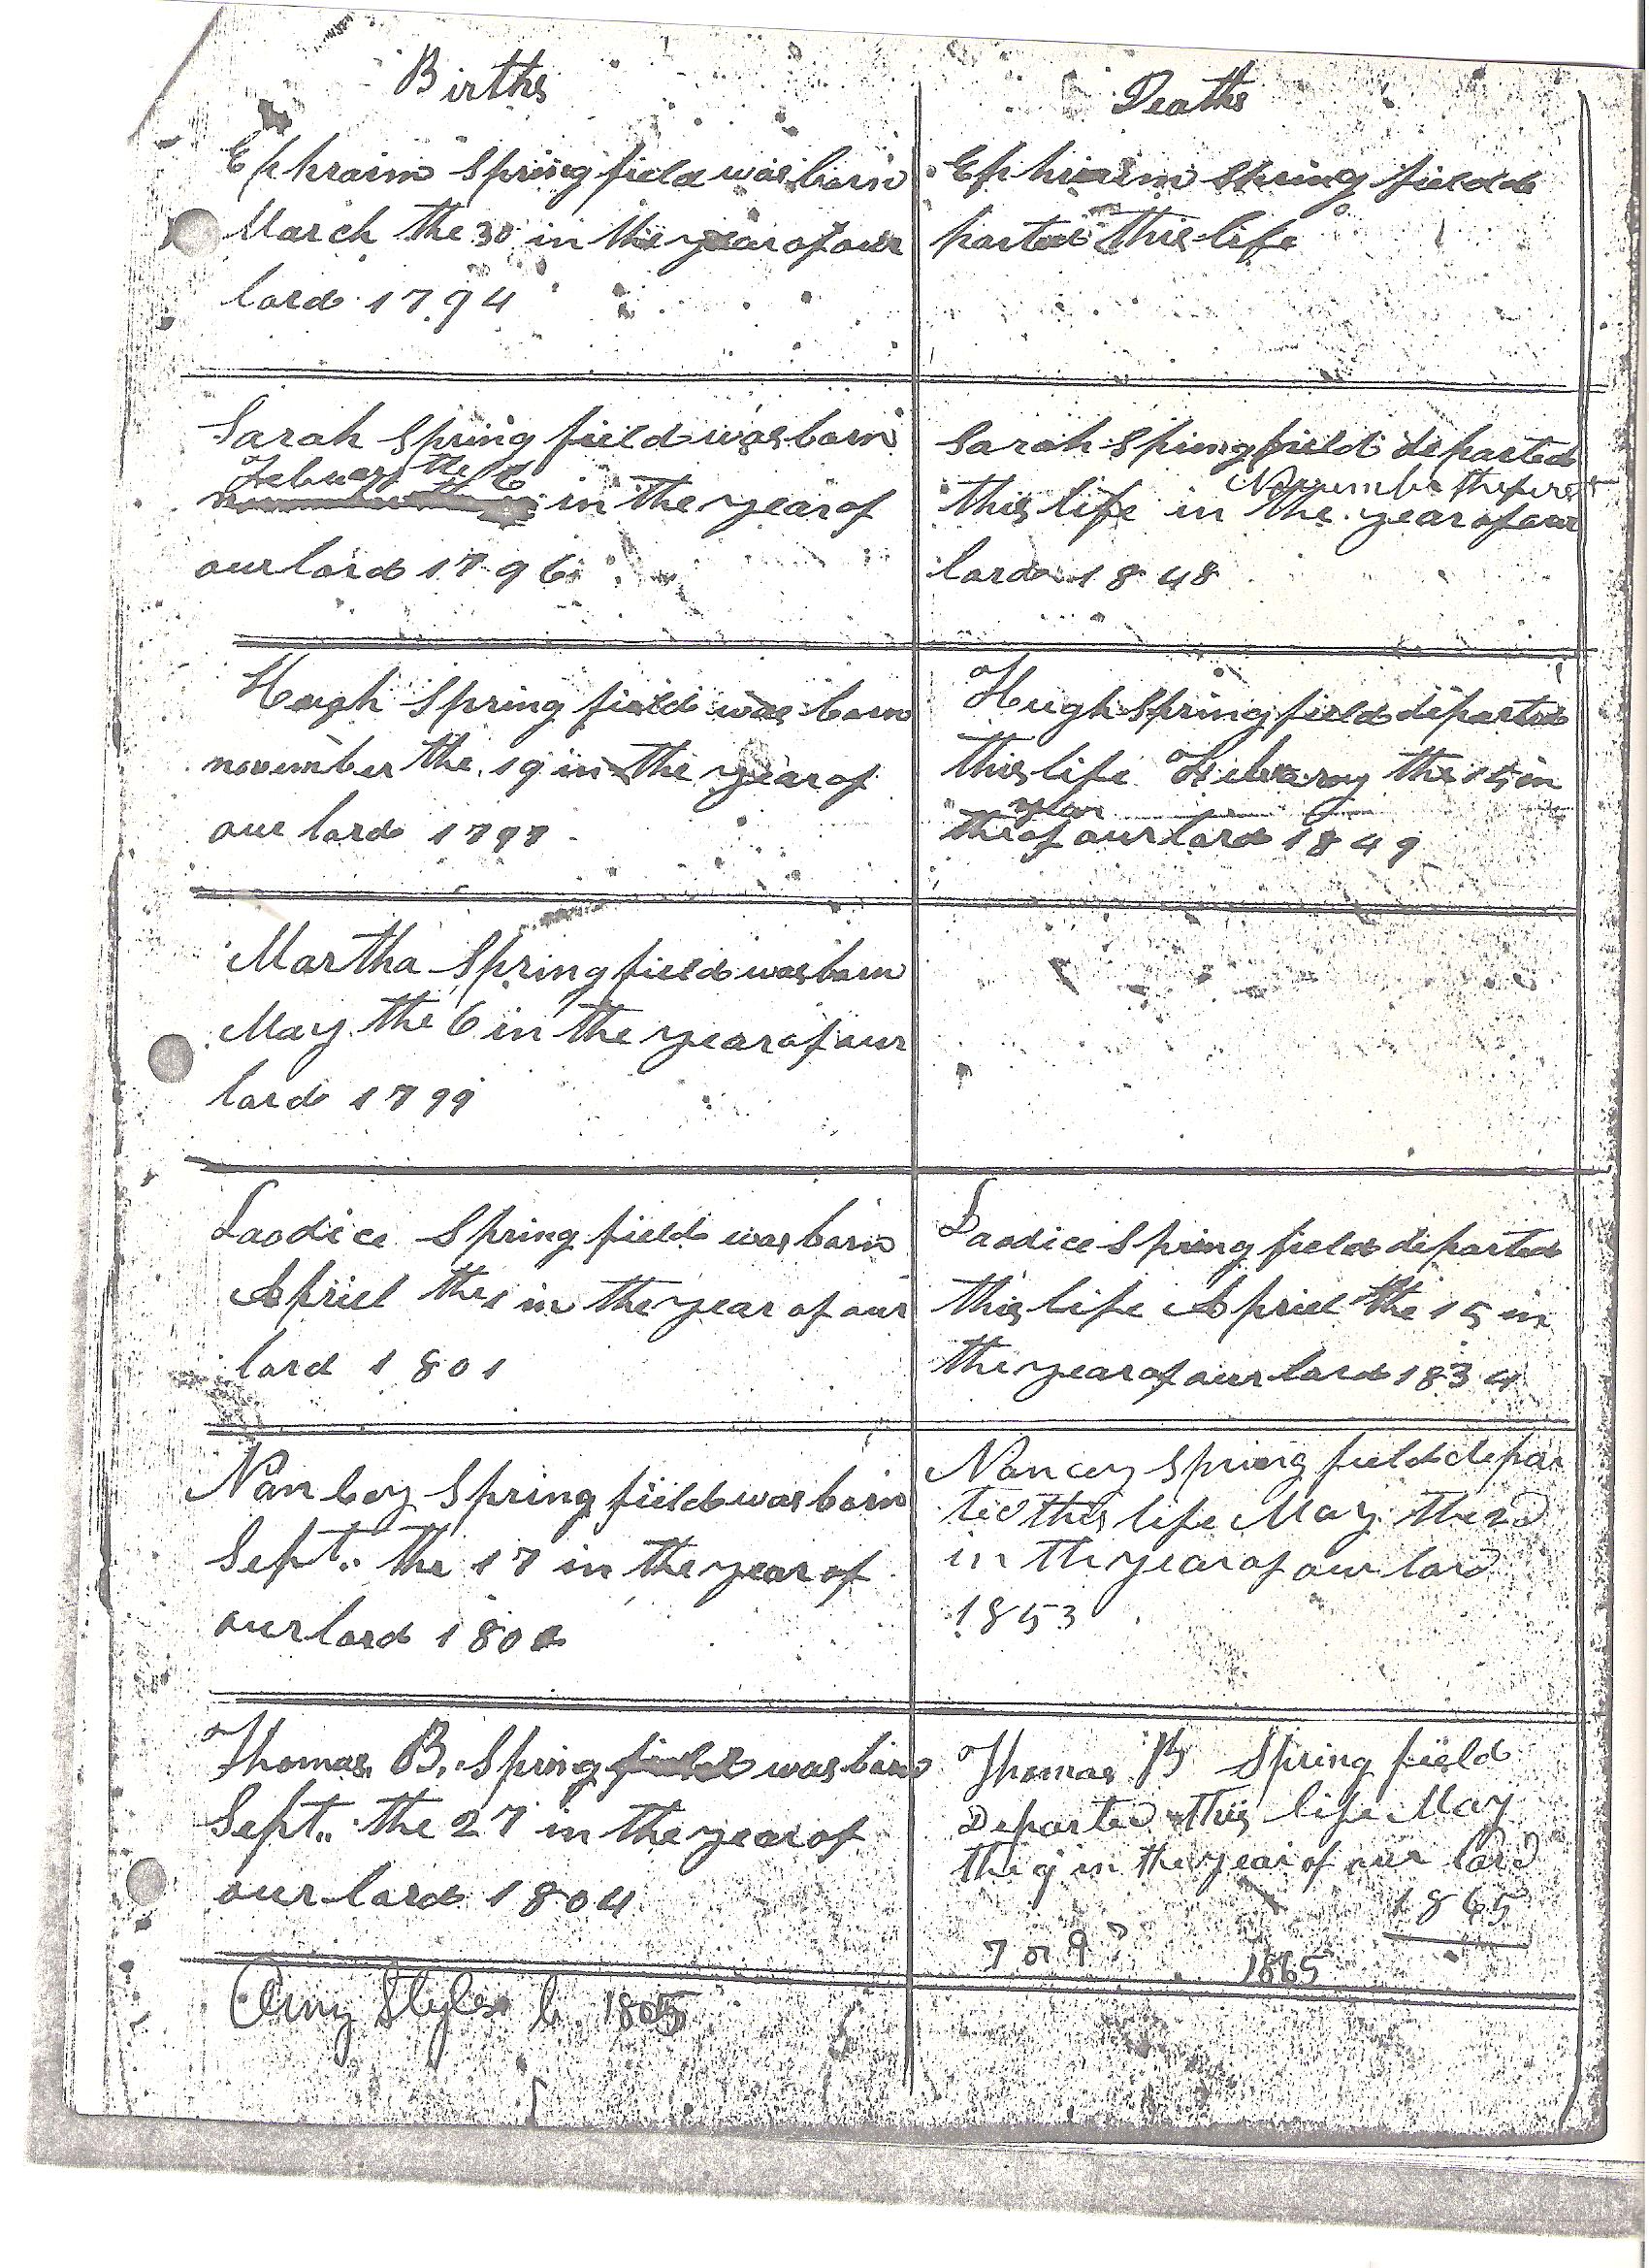 Births
Ephraim Springfield was born
March the 30 in the year of our
lord 1794
Sarah Springfield was born
Februay the 6
in the year of
our lord 1796
Hugh Springfield was born
november the 19 in the year of
our lord 1797
Martha Springfield was born
May the 6 in the year of our
lord 1799
Laodice Springfield was born
Apriel the 1 in the year of our
lord 1801
Nancy Springfield was born
Sept.. the 17 in the year of
our lord 180
Thomas B. Springfield was born
Sept.. the 27 in the year of
our lord 1804
Amy Styles b. 1805
Deaths
Ephraim Springfield de
parted this life
Sarah Springfield departed
Novumber the first
this life in the year of our
lord 1848
Hugh Springfield departed
this life Februay the 15 in
year
the of our lord 1849
Laodice Springfield departed
this life Apriel the 15 in
the year of our lord 1834
Nancy Springfield depar
ted this life May the 2d
in the year of our lord
1853
Thomas B Springfield
Departed this life May
the 9 in the year of our lord
1865
7 or 9? 1865